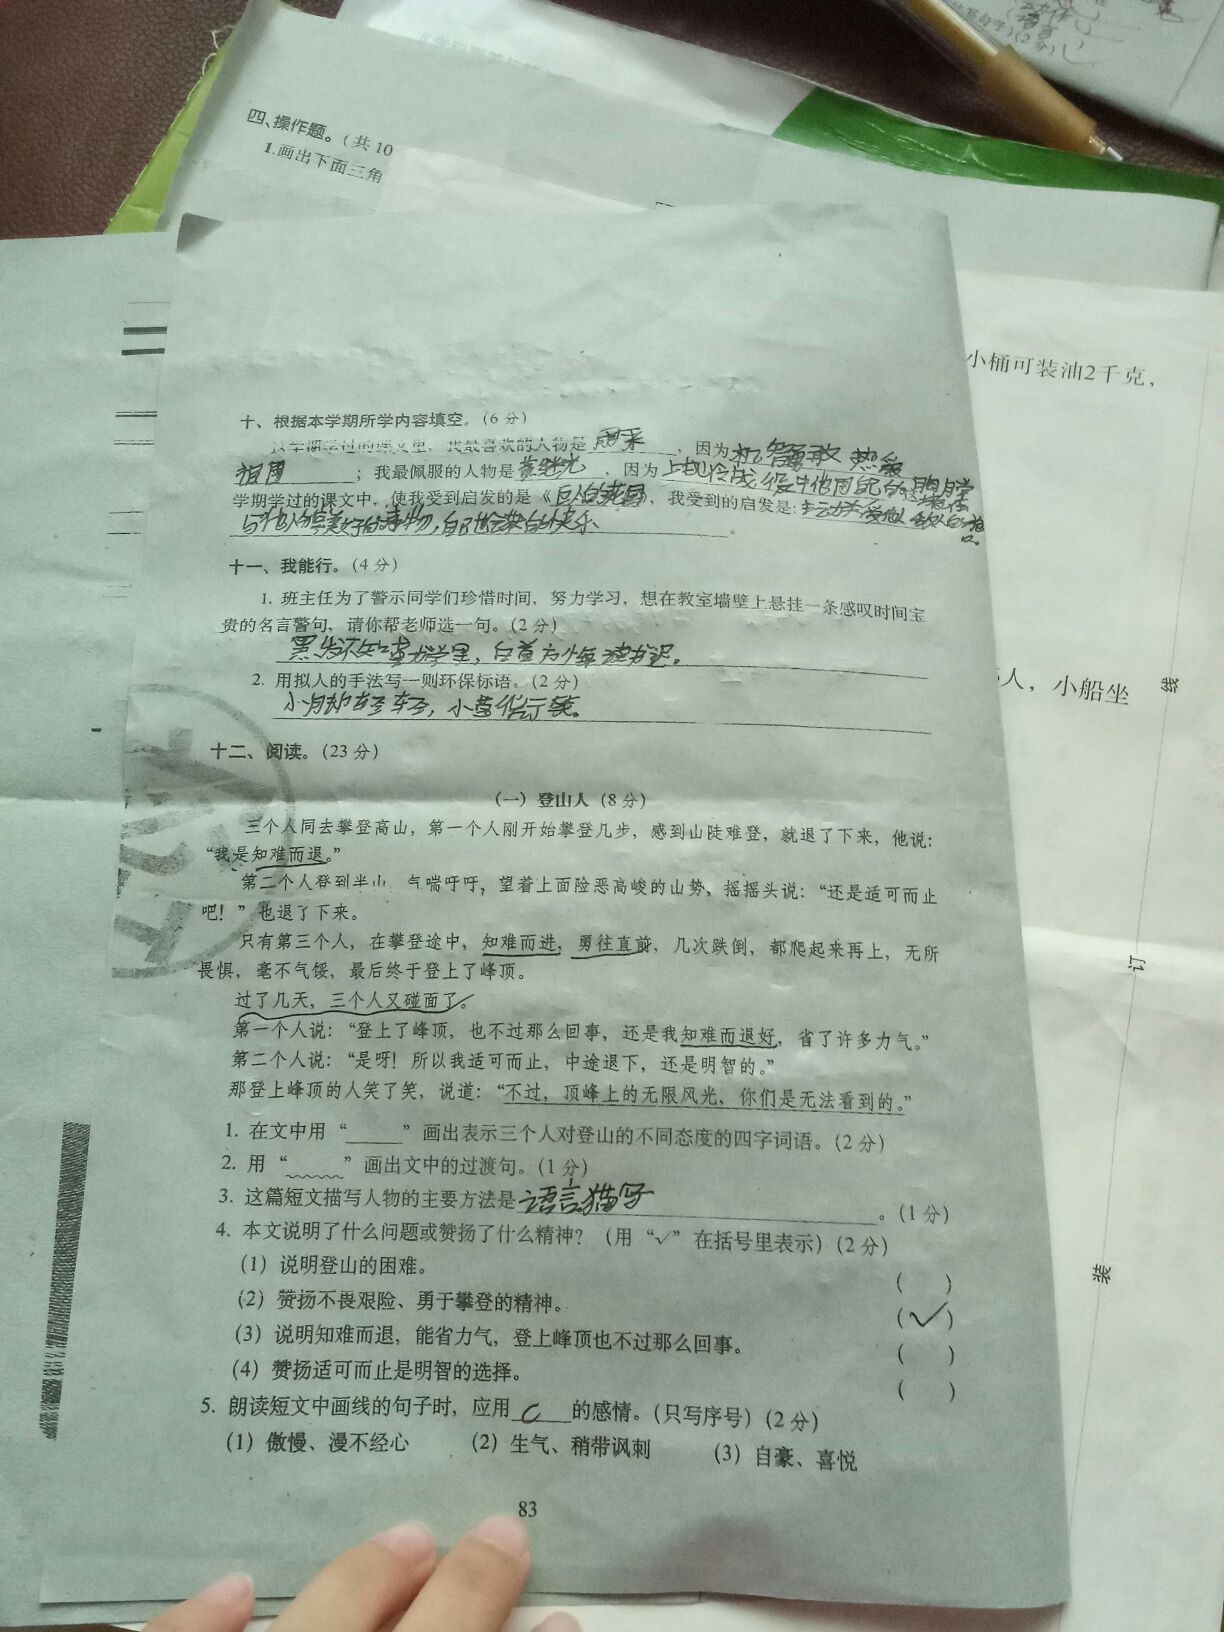 四、操作题。(共10
1.画出下面三角
小桶可装油2千克,
人,小船坐
线
订
装
十、根据本学期所学内容填空。(6分)
这学期学过的课文里,我最喜欢的人物是雨来,因为机智勇敢 热爱
祖国;我最佩服的人物是黄继光,因为
学期学过的课文中,使我受到启发的是《巨人的花园》,我受到的启发是:
与他人分享美好的事物,自己也会
十一、我能行。(4分)
1. 班主任为了警示同学们珍惜时间,努力学习,想在教室墙壁上悬挂一条感叹时间宝
贵的名言警句,请你帮老师选一句。(2分)
黑发不知勤学早,白首方悔读书迟。
2. 用拟人的手法写一则环保标语。(2分)
小草
十二、阅读。(23分)
(一) 登山人(8分)
三个人同去攀登高山,第一个人刚开始攀登几步,感到山陡难登,就退了下来,他说:
“我是知难而退。”
第二个人登到半山,气喘吁吁,望着上面险恶高峻的山势,摇摇头说:“还是适可而止
吧!”也退了下来。
只有第三个人,在攀登途中,知难而进,勇往直前,几次跌倒,都爬起来再上,无所
畏惧,毫不气馁,最后终于登上了峰顶。
过了几天,三个人又碰面了。
第一个人说:“登上了峰顶,也不过那么回事,还是我知难而退好,省了许多力气。”
第二个人说:“是呀!所以我适可而止,中途退下,还是明智的。”
那登上峰顶的人笑了笑,说道:“不过,顶峰上的无限风光,你们是无法看到的。”
1. 在文中用“____”画出表示三个人对登山的不同态度的四字词语。(2分)
2. 用“﹏﹏”画出文中的过渡句。(1分)
3. 这篇短文描写人物的主要方法是语言猫写。(1分)
4. 本文说明了什么问题或赞扬了什么精神?(用“√”在括号里表示)(2分)
(1) 说明登山的困难。( )
(2) 赞扬不畏艰险、勇于攀登的精神。(√)
(3) 说明知难而退,能省力气,登上峰顶也不过那么回事。( )
(4) 赞扬适可而止是明智的选择。( )
5. 朗读短文中画线的句子时,应用C的感情。(只写序号)(2分)
(1) 傲慢、漫不经心 (2) 生气、稍带讽刺 (3) 自豪、喜悦
83